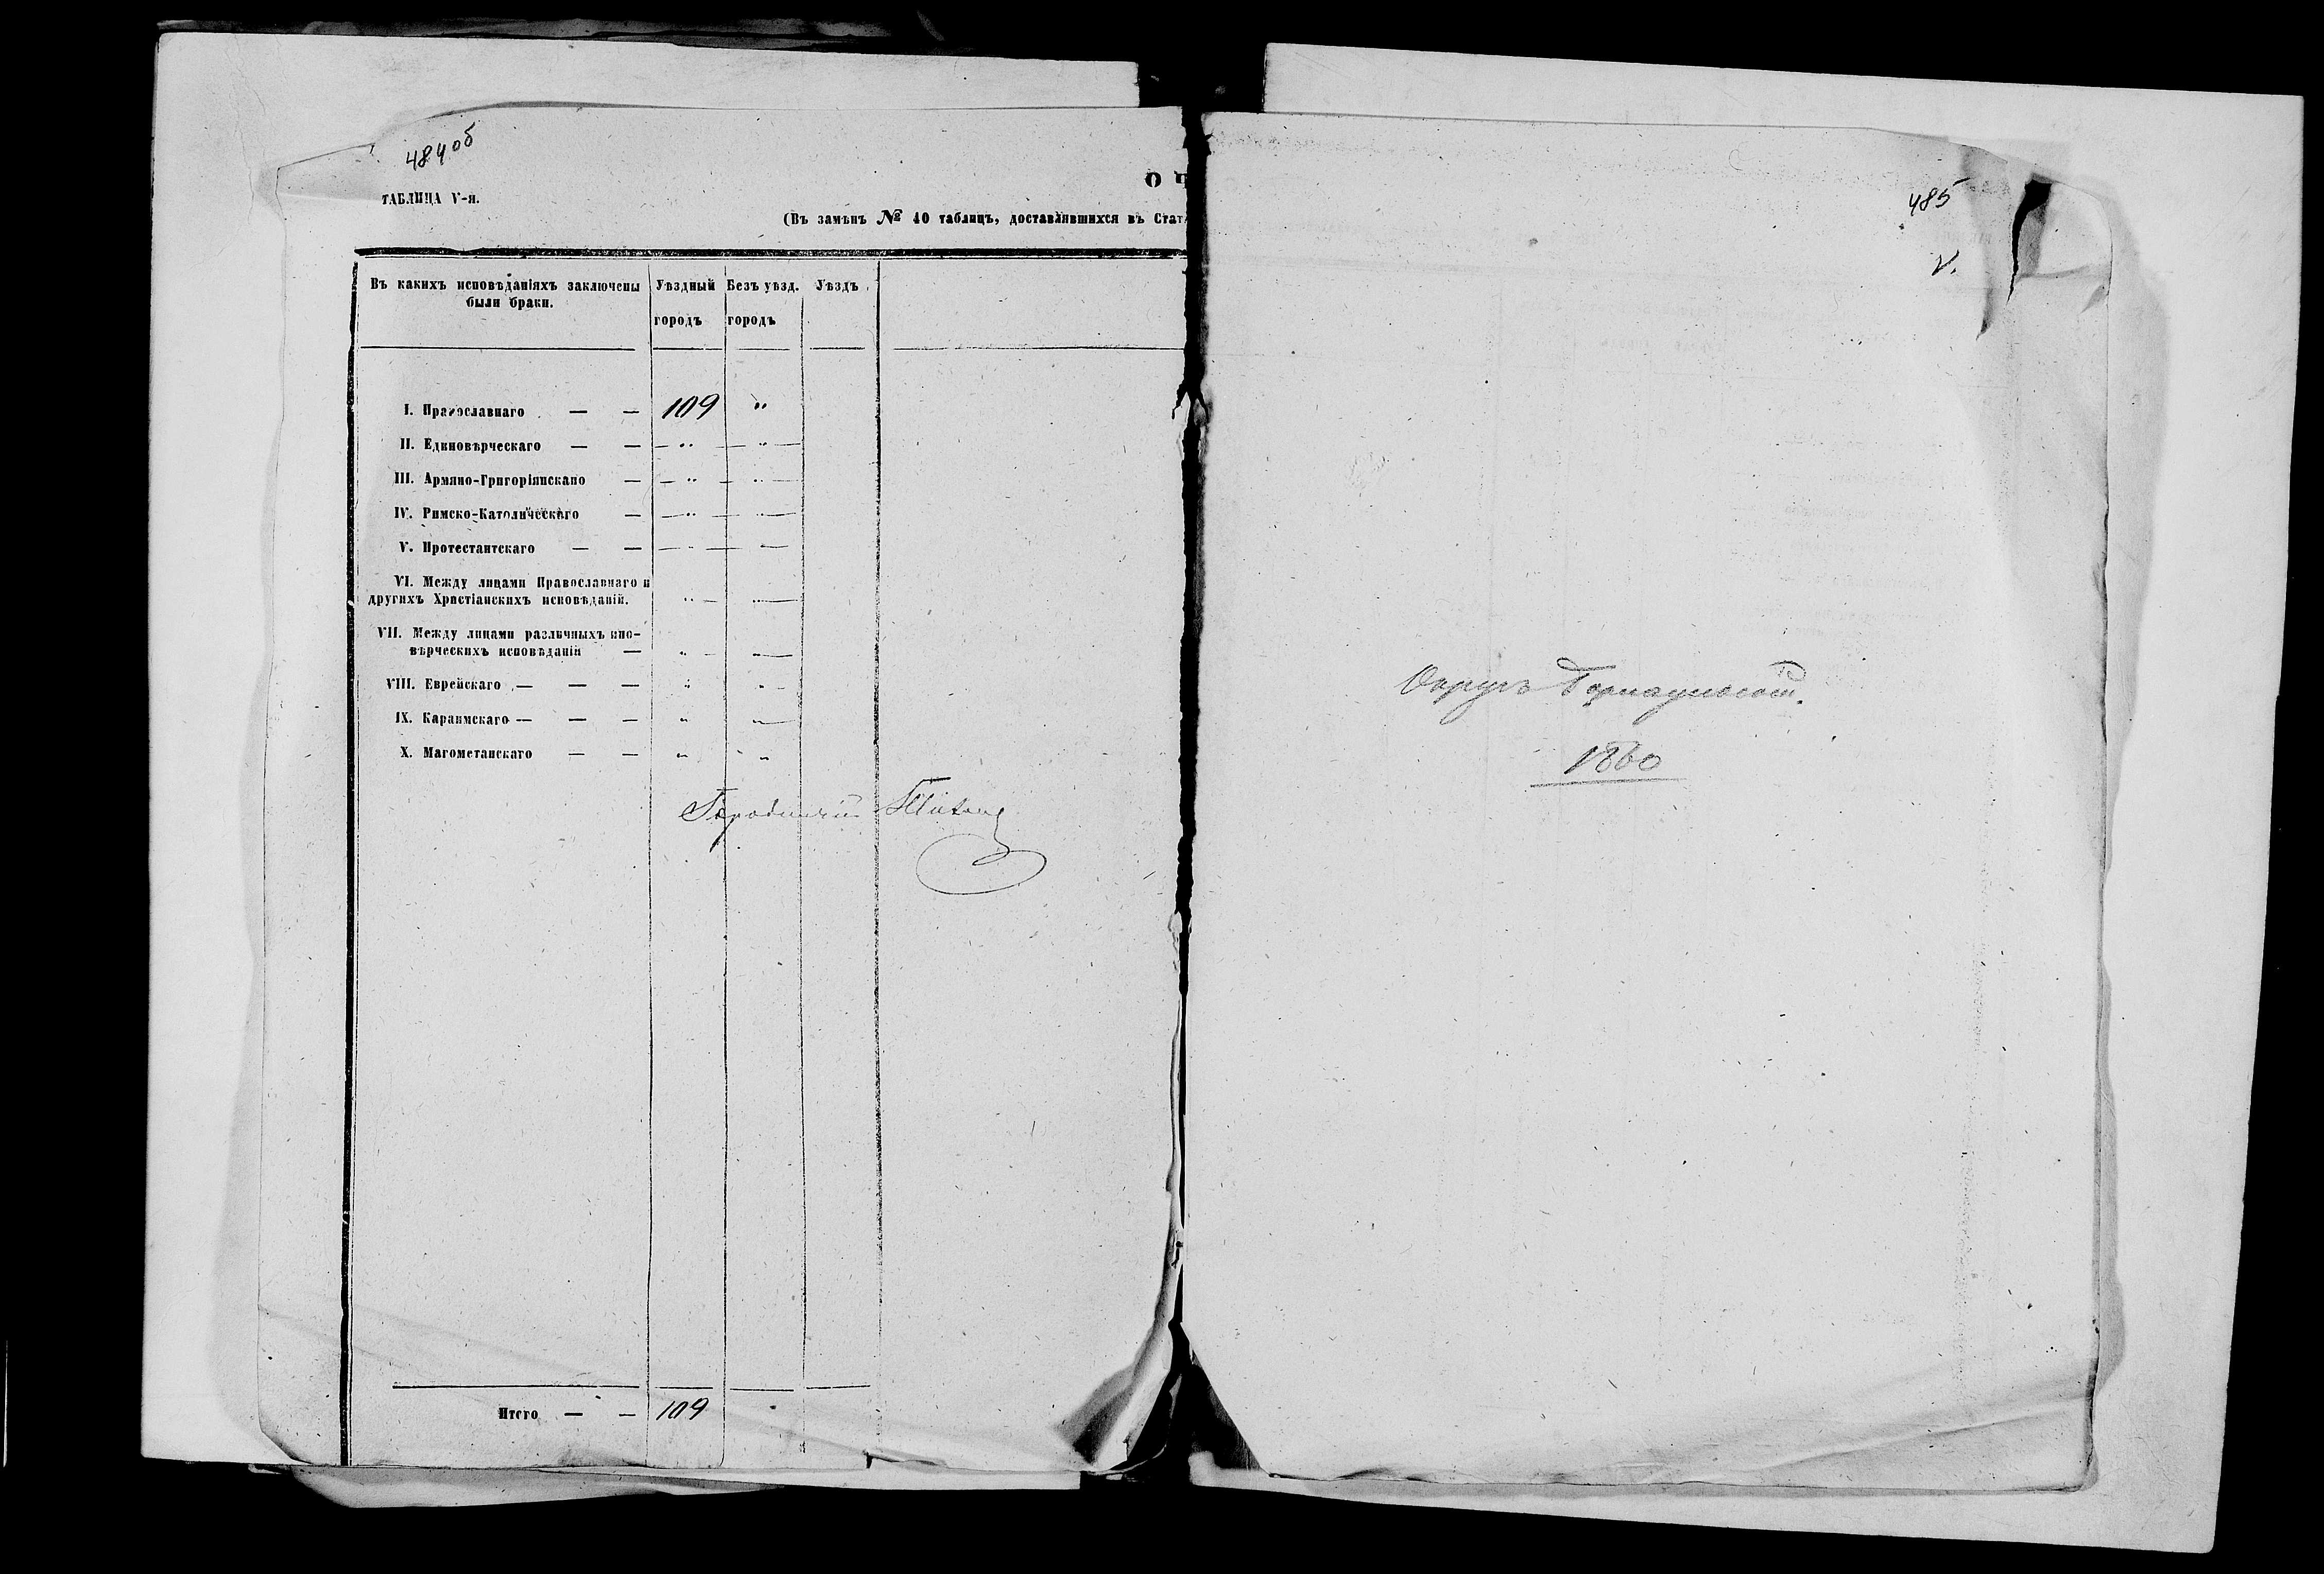 484об
ТАБЛИЦА V-я.
О Ч
(Въ замѣнъ № 10 таблицъ, доставлявшихся въ Стат
Въ какихъ исповѣданіяхъ заключены были браки.
Уѣздный городъ
Безъ уѣзд. городъ
Уѣздъ
I. Православнаго — — 109 "
II. Единовѣрческаго — — " "
III. Армяно-Григоріянскаго — " "
IV. Римско-Католическаго — " "
V. Протестантскаго — — " "
VI. Между лицами Православнаго и
другихъ Христіанскихъ исповѣданій. " "
VII. Между лицами различныхъ ино-
вѣрческихъ исповѣданій — " "
VIII. Еврейскаго — — — " "
IX. Караимскаго — — — " "
X. Магометанскаго — — " "
Городничій
Итого — — 109
485
V.
Округъ
1860